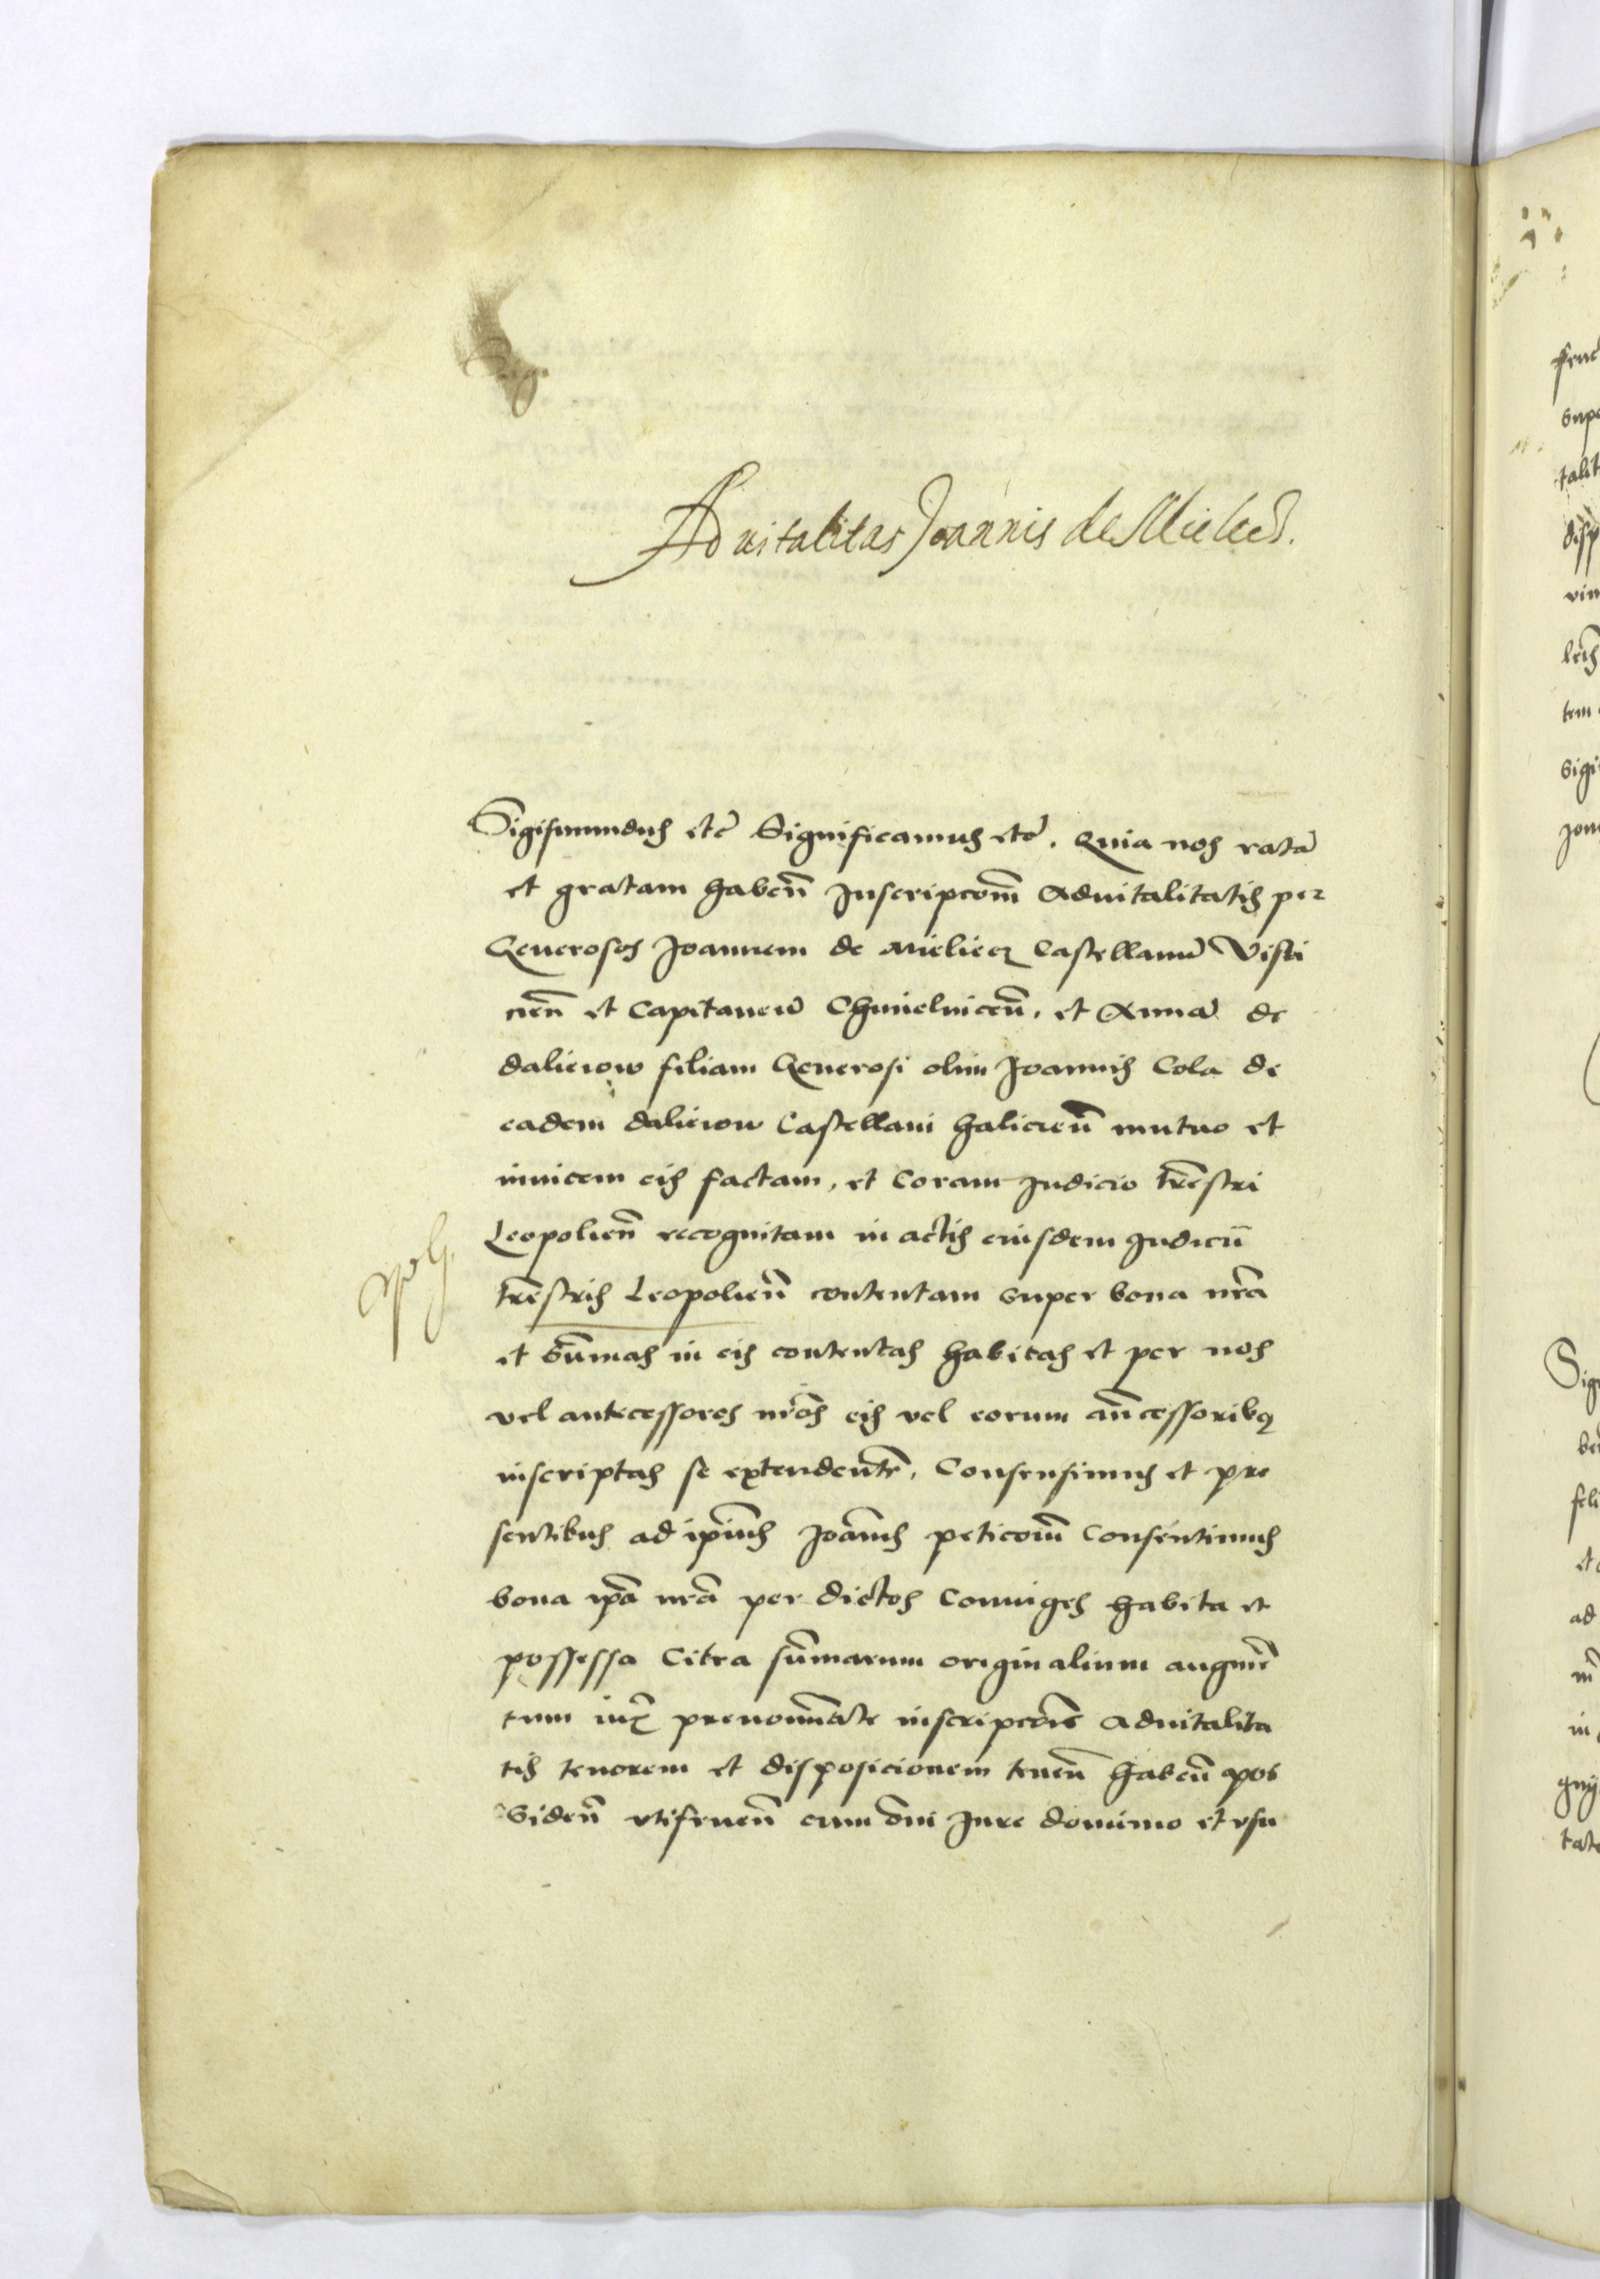 Aduitalitas Joannis de Mielecz.
Sigismundus etc̃ Significamus etc̃. Quia nos ratã
et gratam habeñ Inscripcoñm Aduitalitatis per
Generosos Joannem de mieliecz Castellanũ Visli
cieñ et Capitaneũ Chmielniceñ. et Annã de
daliciow filiam Generosi olim Joannis Cola de
eadem daliciow Castellani halicieñ mutuo et
inuicem eis factam, et Coram Judicio trẽstri
Leopolieñ recognitam in actis eiusdem Judicii
trẽstris Leopolieñ contentam super bona nrã
et sũmas in eis contentas habitas et per nos
vel antecessores nrõs eis vel eorum añcessoribus
inscriptas se extendeñtẽ, Consensimus et pre
sentibus ad ipĩus Joãnis peticoñm Consentimus
bona ipã nrã per dictos Coniuges habita et
possessa Citra sũmarum originalium augmẽ
tum iux̃ prenomĩate inscripcõis Aduitalita
tis tenorem et disposicionem teneñ habeñ pos
sideñ vtifrueñ cum om̃i Jure dominio et vsu
fruc
supe
talit
disp
vin
tem
Sigi
Joan